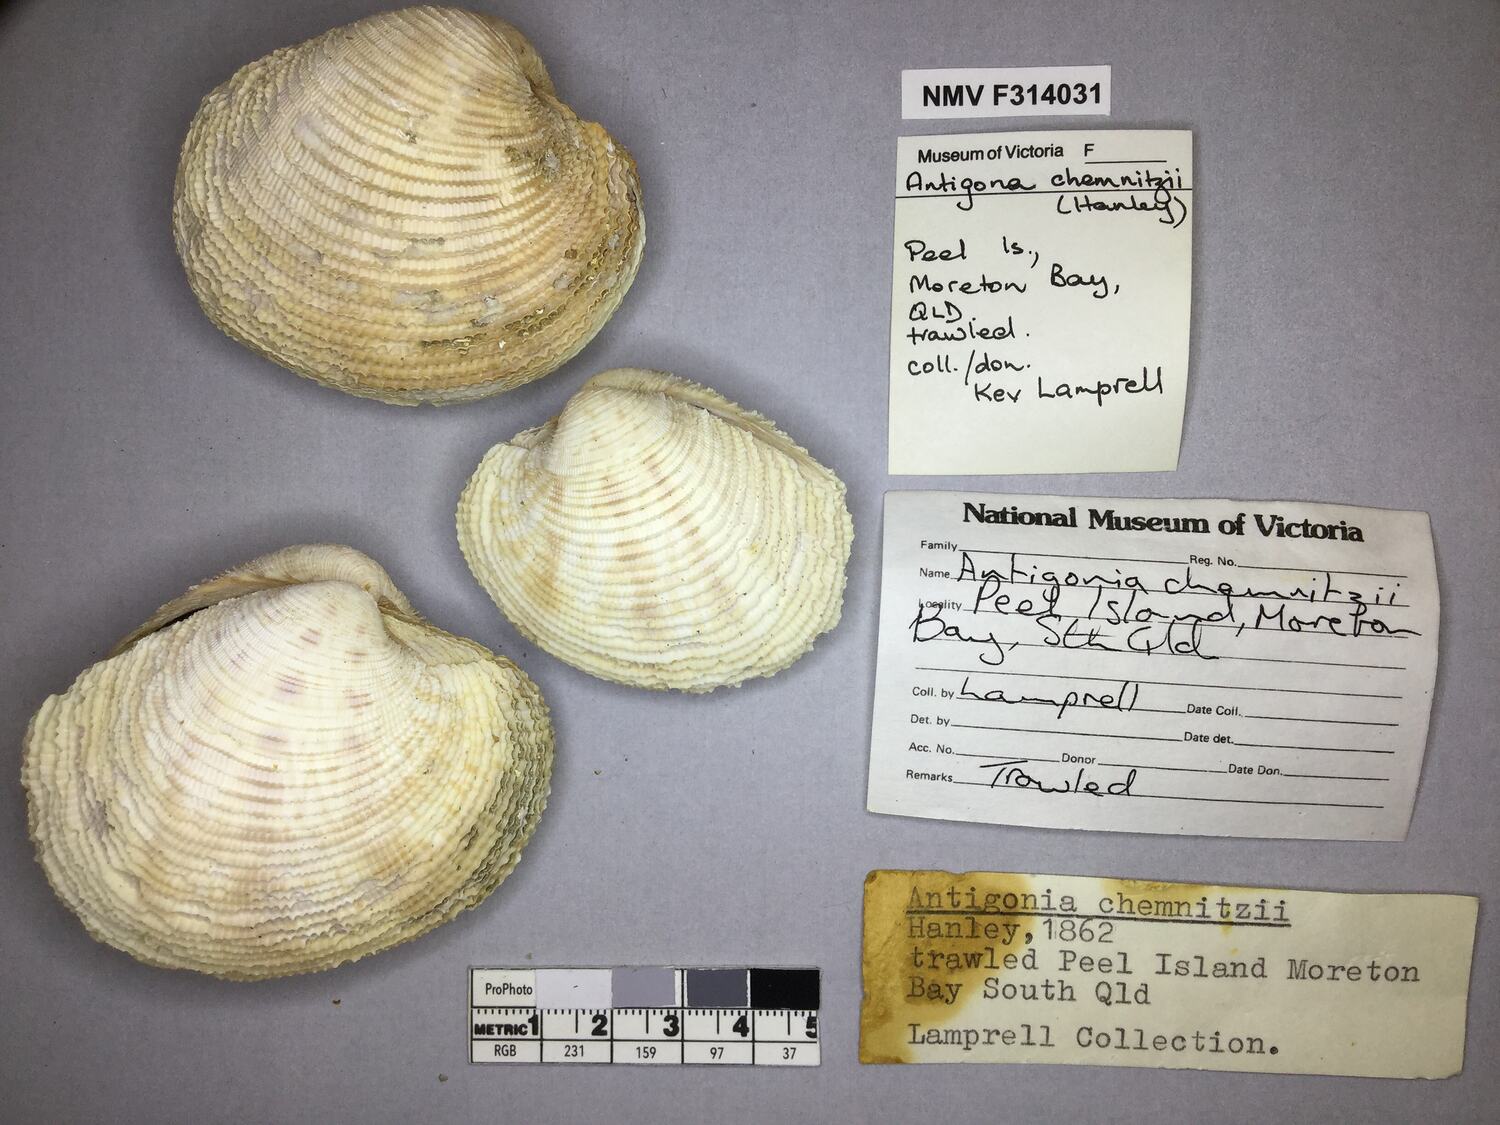 NMV F314031
Museum of Victoria F
Antigona chemnitzii
(Hanley)
Peel Is.,
Moreton Bay,
QLD
trawled.
coll./don.
Kev Lamprell
National Museum of Victoria
Family Reg. No.
Name Antigonia chemnitzii
Locality Peel Island, Moreton
Bay, Sth Qld
Coll. by Lamprell Date Coll.
Det. by Date det.
Acc. No. Donor Date Don.
Remarks Trawled
Antigonia chemnitzii
Hanley, 1862
trawled Peel Island Moreton
Bay South Qld
Lamprell Collection.
ProPhoto
METRIC 1 2 3 4 5
RGB 231 159 97 37